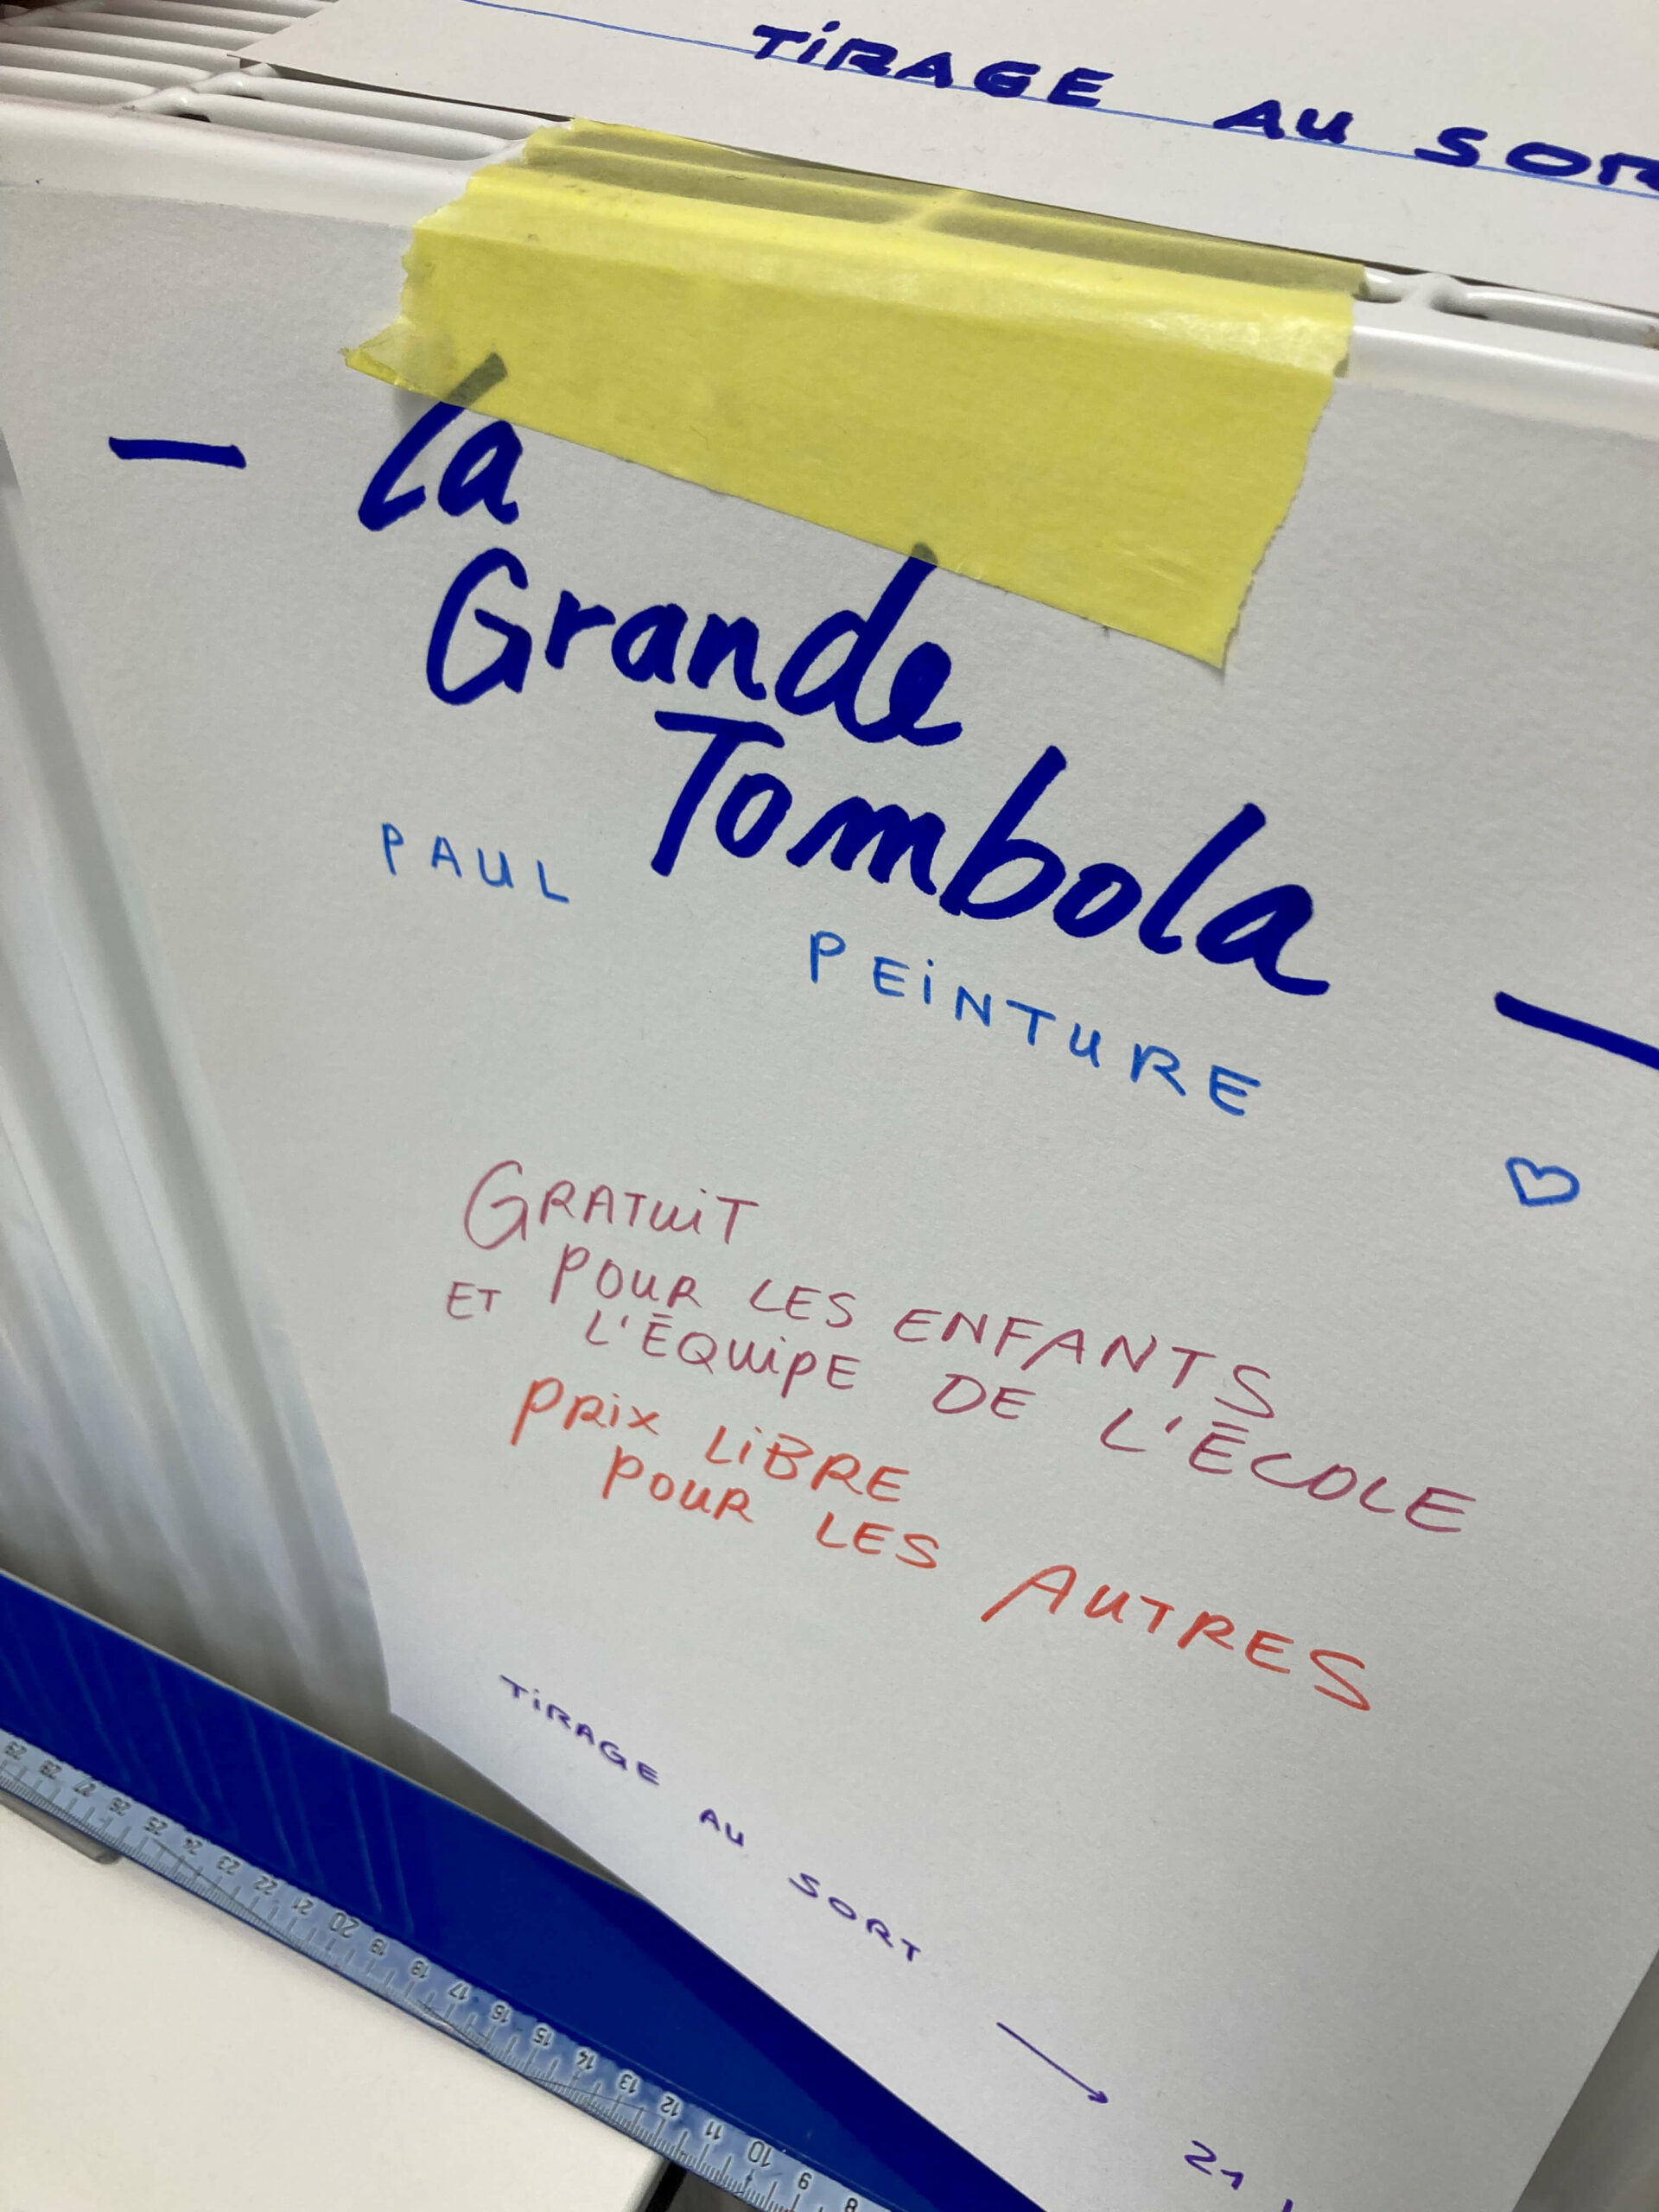 TiRAGE AU SOR
— La
Grande
Tombola —
PAUL PEiNTURE
♡
GRATUiT
POUR LES ENFANTS
ET L'ÉQUiPE DE L'ÉCOLE
PRiX LiBRE
POUR LES AUTRES
TiRAGE AU SORT → 21
29 28 27 26 25 24 23 22 21 20 19 18 17 16 15 14 13 12 11 10 9 8